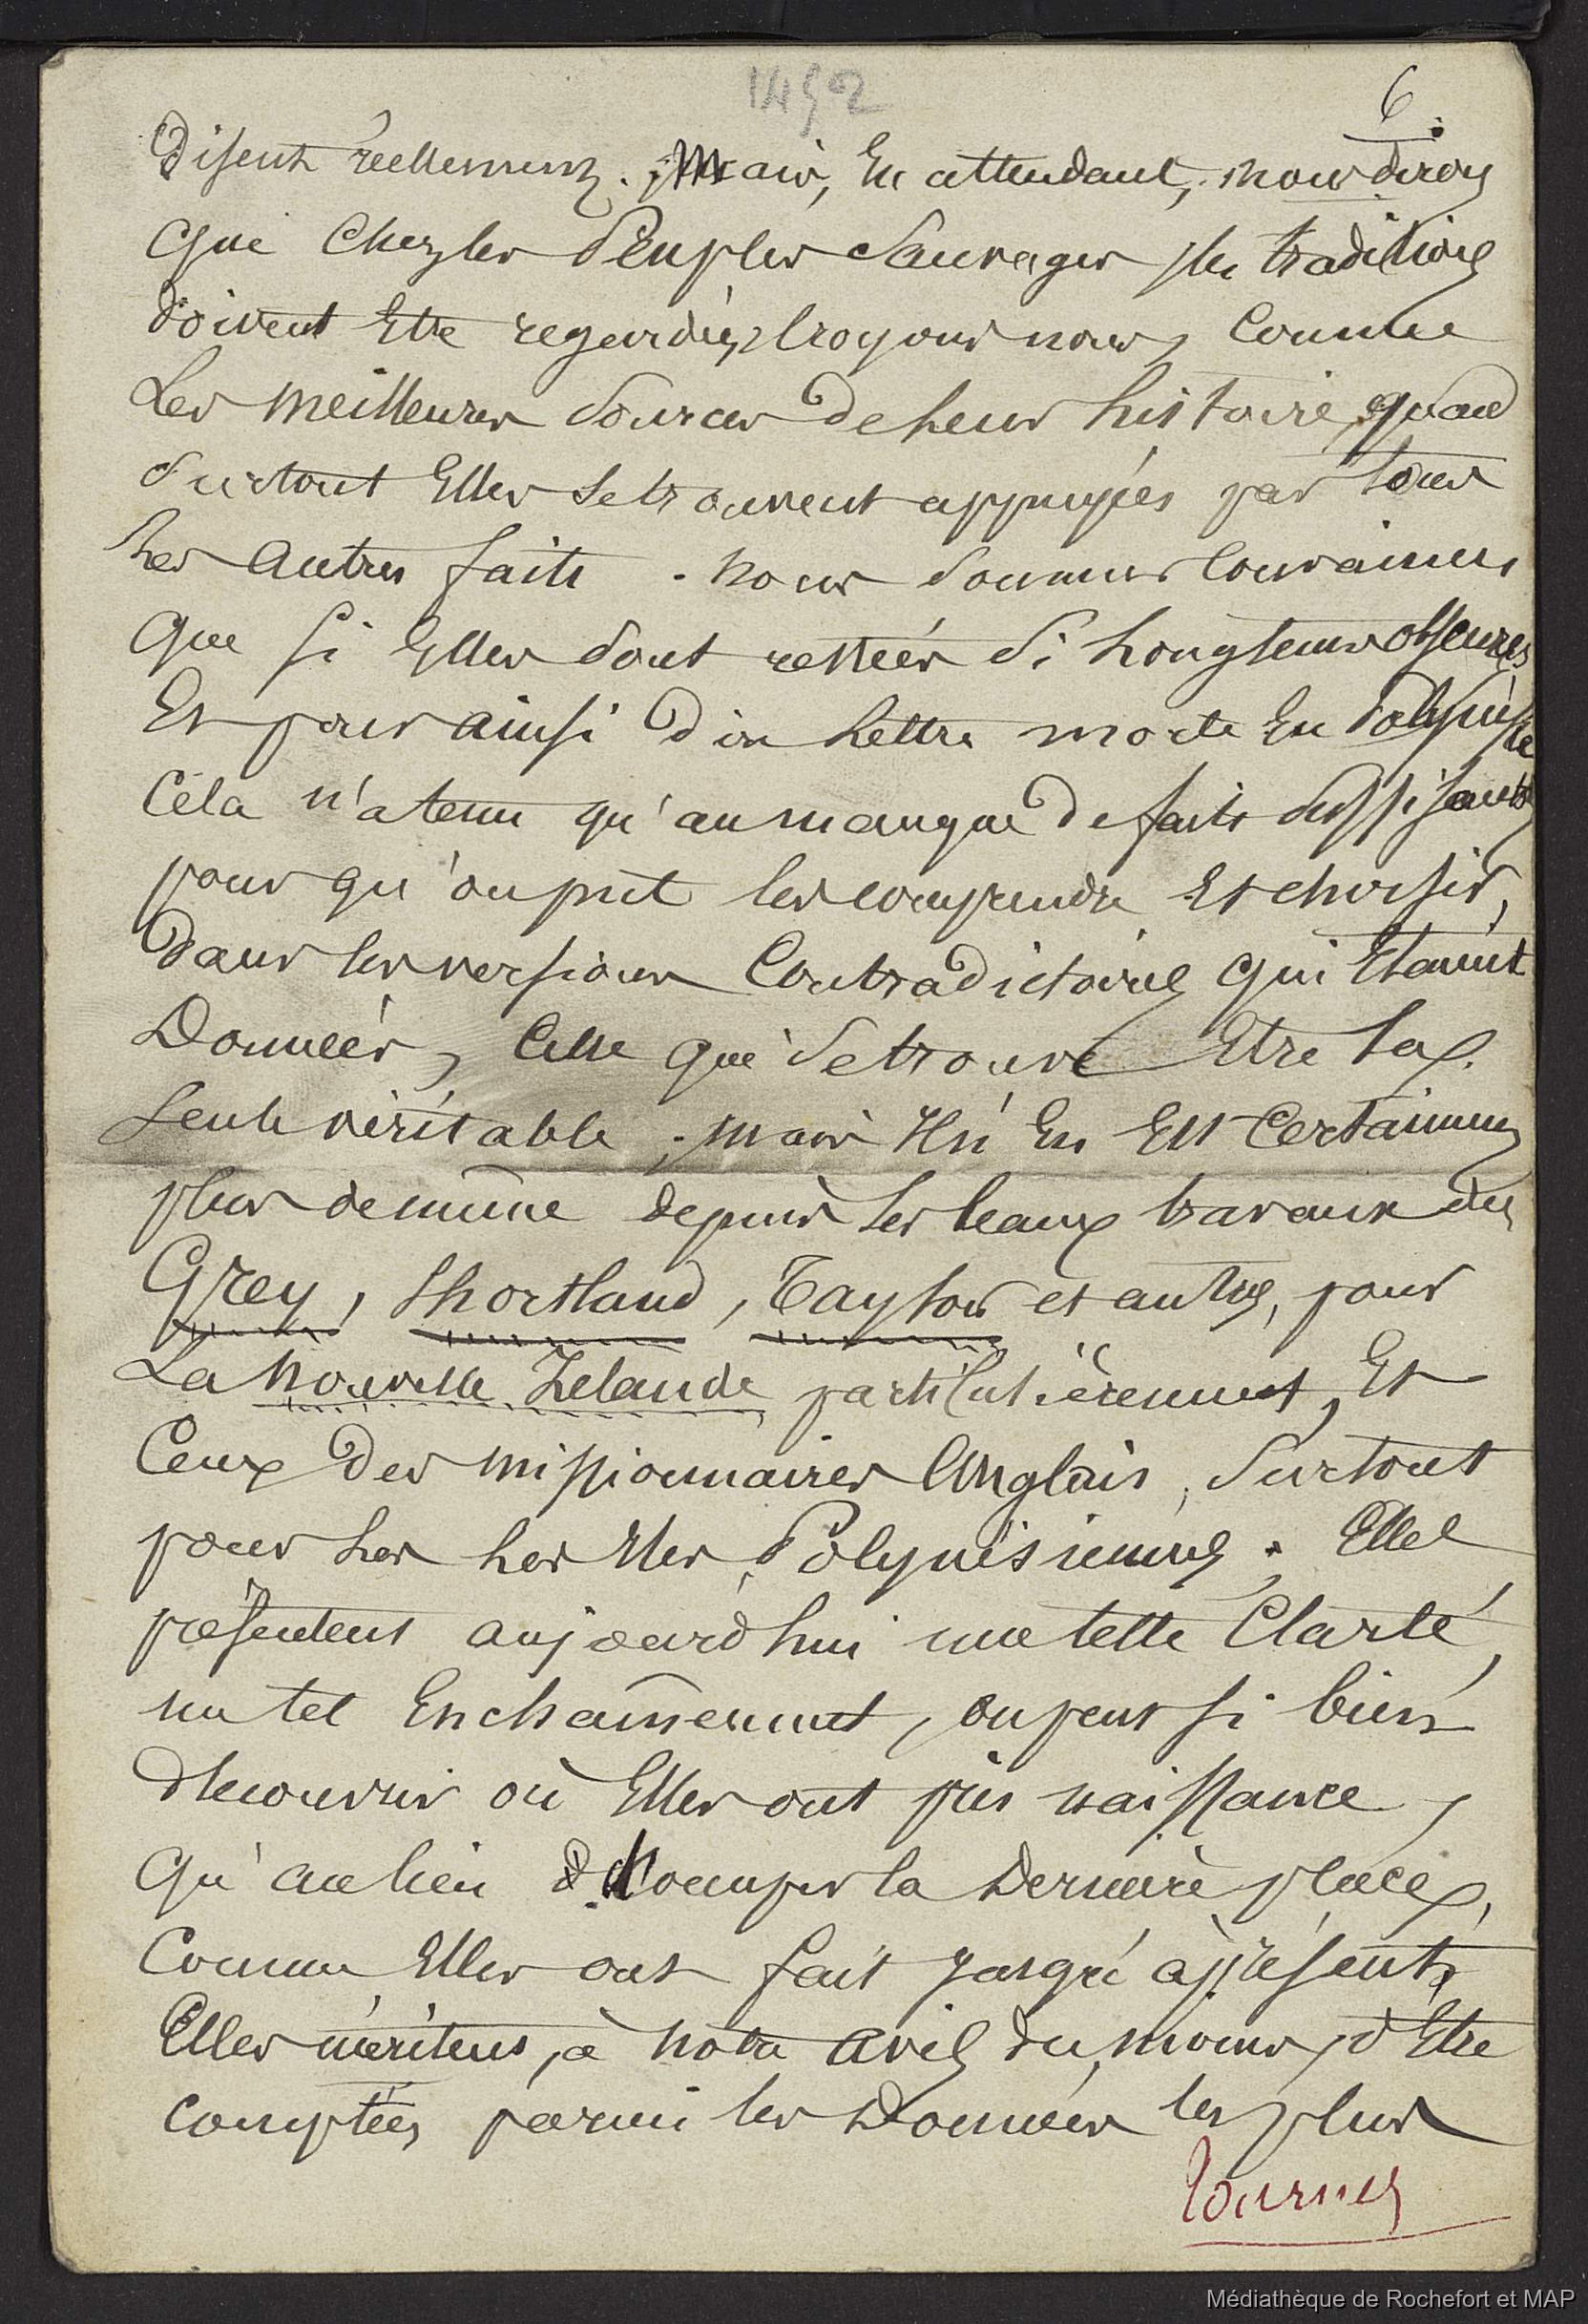 1452
6.
disent réellement. Mais, en attendant, nous dirons
que chez les Peuples Sauvages, les traditions
doivent être regardées, croyons nous, comme
les meilleures sources de leur histoire, quand
surtout elles se trouvent appuyées par tous
les autres faits. nous sommes convaincus
que si elles sont restées si longtems obscures
et pour ainsi dire lettre morte en Polynésie
cela n'a tenu qu'au manque de faits suffisants
pour qu'on pût les comprendre et choisir,
dans les versions contradictoires qui étaient
données, celle qui se trouve être la
seule véritable ; mais il n'en est certainement
plus de même depuis les beaux travaux des
Grey, Shortland, Taylor et autres, pour
la Nouvelle Zélande particulièrement, et
ceux des missionnaires anglais, surtout
pour les les Iles Polynésiennes. Elles
présentent aujourd'hui une telle clarté,
un tel enchaînement, on peut si bien
découvrir où elles ont pris naissance,
qu'au lieu d'occuper la dernière place,
comme elles ont fait jusqu'à présent,
elles méritent, à notre avis du moins, d'être
comptées parmi les données les plus
Tournez
Médiathèque de Rochefort et MAP